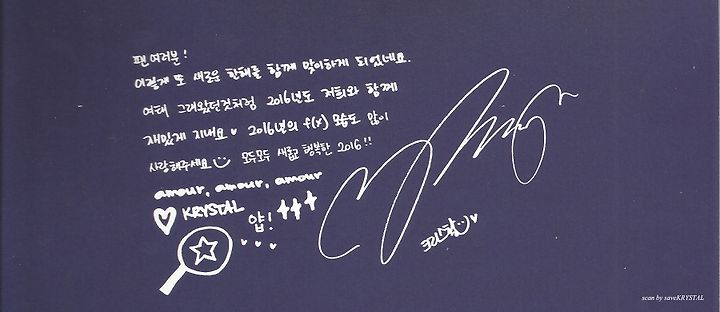 팬 여러분!
이렇게 또 새로운 한해를 함께 맞이하게 되었네요.
여태 그래왔던것처럼 2016년도 저희와 함께
재밌게 지내요 ♥ 2016년의 f(x) 모습도 많이
사랑해주세요 모두모두 새롭고 행복한 2016!!
amour, amour, amour
♡ KRYSTAL 얍! +++
크리스탈 ♥
scan by saveKRYSTAL